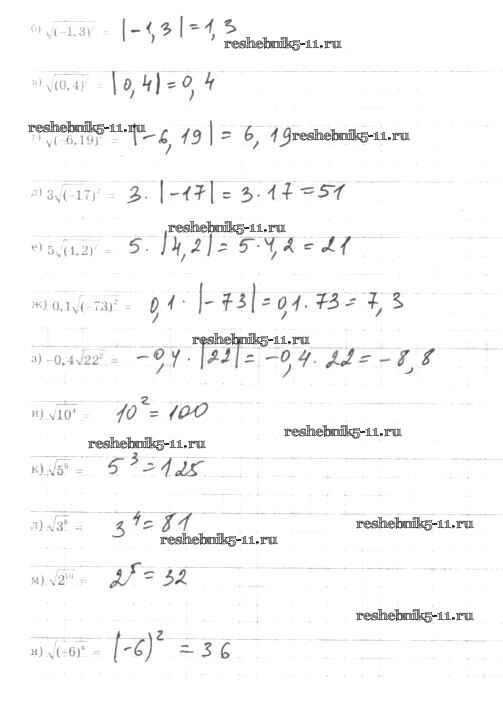 б) √(−1,3)² = |−1,3| = 1,3
reshebnik5-11.ru
в) √(0,4)² = |0,4| = 0,4
reshebnik5-11.ru
г) √(−6,19)² = |−6,19| = 6,19 reshebnik5-11.ru
д) 3√(−17)² = 3·|−17| = 3·17 = 51
reshebnik5-11.ru
е) 5√(4,2)² = 5·|4,2| = 5·4,2 = 21
ж) 0,1√(−73)² = 0,1·|−73| = 0,1·73 = 7,3
reshebnik5-11.ru
з) −0,4√22² = −0,4·|22| = −0,4·22 = −8,8
и) √10⁴ = 10² = 100
reshebnik5-11.ru
reshebnik5-11.ru
к) √5⁶ = 5³ = 125
л) √3⁸ = 3⁴ = 81
reshebnik5-11.ru
reshebnik5-11.ru
м) √2¹⁰ = 2⁵ = 32
reshebnik5-11.ru
н) √(−6)⁴ = (−6)² = 36